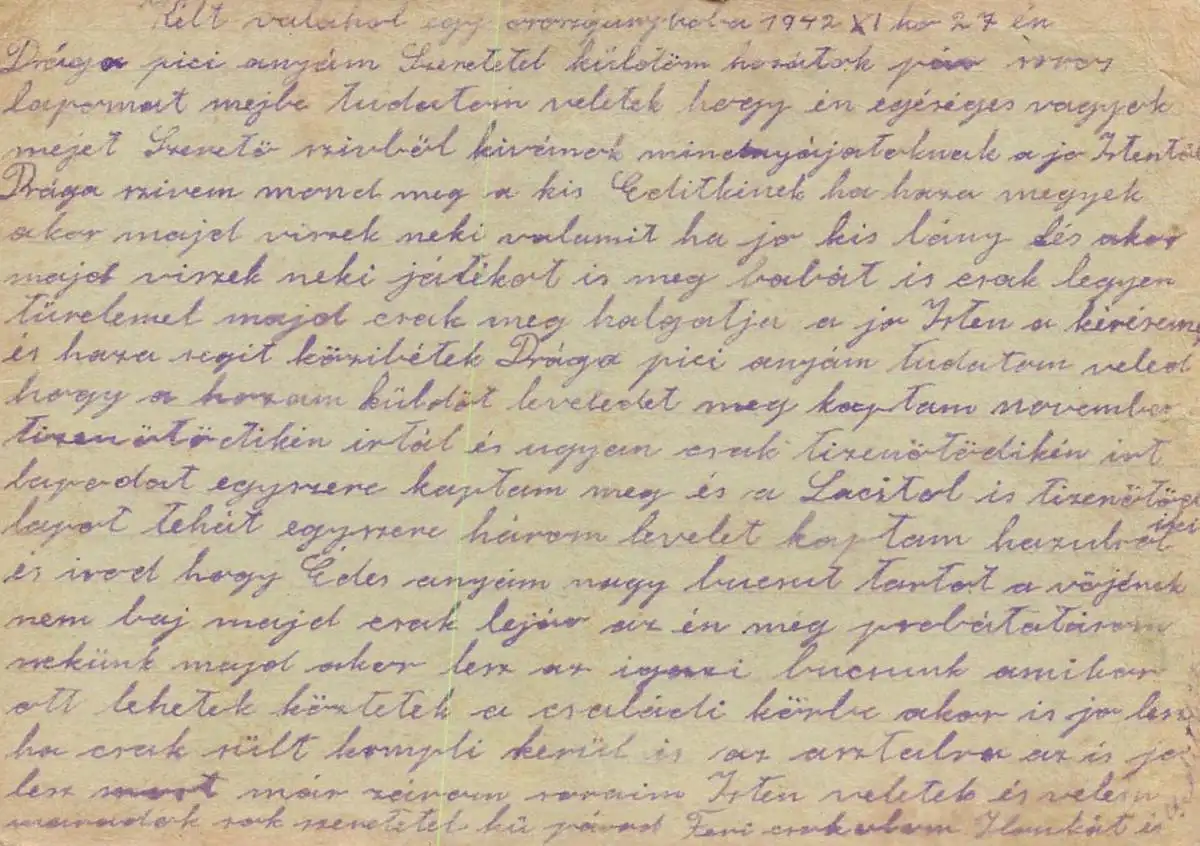 Kélt valahol egy oroszgunyhoba 1942 XI ho 27 én
Drága pici anyám Szeretetel küldöm hozátok pár soros
lapomat mejbe tudatom veletek hogy én egéséges vagyok
mejet Szerető szivből kivánok mindnyájatoknak a jo Istentől
Drága szivem mond meg a kis Editkének ha haza megyek
akor majd viszek neki valamit ha jo kis lány lés akor
majd viszek neki játékot is meg babát is csak legyen
türelemel majd csak meg halgatja a jo Isten a kérésem
és haza segit közibétek Drága pici anyám tudatom veled
hogy a hozam küldöt leveledet meg kaptam november
tizenötödikén irtál és ugyan csak tizenötödikén irt
lapodat egyszere kaptam meg és a Lacitol is tizenötö
lapot tehát egyszere három levelet kaptam hazulrol
és irod hogy Édes anyám nagy bucsut tartot a vöjének
nem baj majd csak lejár az én meg probátatásom
nekünk majd akor lesz az igazi bucsunk amikor
ott lehetek köztetek a családi körbe akor is jo lesz
ha csak sült kompli kerül is az asztalra az is jo
lesz mert már zárom soraim Isten veletek és velem
maradok sok szeretetel hü párod Feri csokolom Ilonkát is